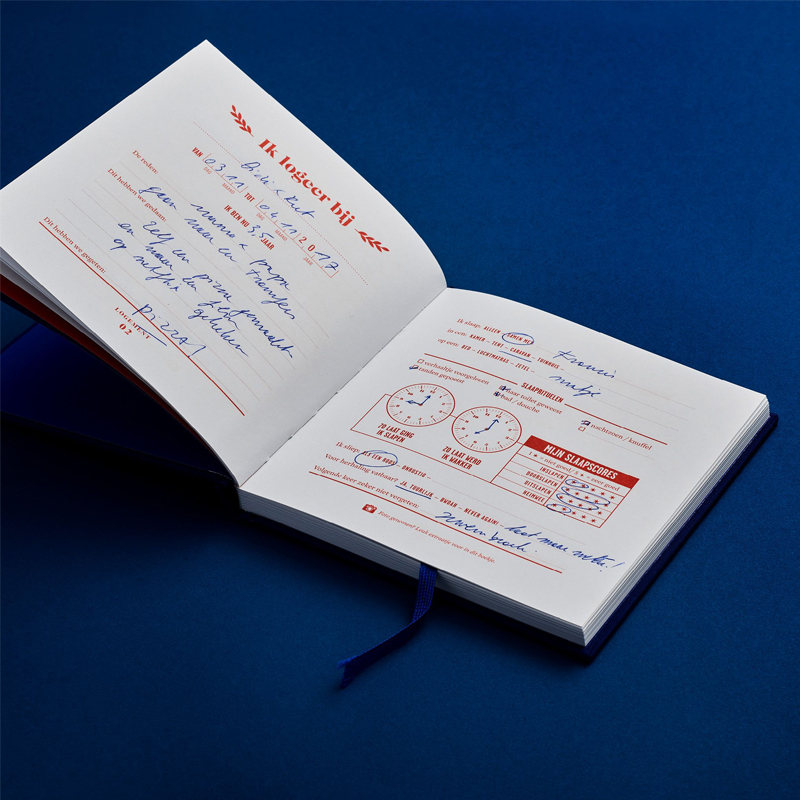 Ik logeer bij
Didi & Riet
VAN 03 11 TOT 04 11 2017
DAG MAAND DAG MAAND JAAR
IK BEN NU 3,5 JAAR
De reden:
gaan mama & papa
Dit hebben we gedaan:
zelf en pizza gemaakt
en naar en film gekeken
op netflix
Dit hebben we gegeten:
pizza!
LOGEMENT
02
Ik sliep: ALLEEN - SAMEN MET
in een: KAMER - TENT - CARAVAN - TUINHUIS -
op een: BED - LUCHTMATRAS - ZETEL - matje
SLAAPRITUELEN
verhaaltje voorgelezen
naar toilet geweest
nachtzoen / knuffel
tanden gepoetst
bad / douche
ZO LAAT GING IK SLAPEN
ZO LAAT WERD IK WAKKER
MIJN SLAAPSCORES
1 ★ = niet goed / 5 ★ = zeer goed
INSLAPEN
DOORSLAPEN
UITSLAPEN
HEIMWEE
Ik sliep: ALS EEN ROOS - ONRUSTIG -
Voor herhaling vatbaar? JA, TUURLIJK - BWOAH - NEVER AGAIN! -
Volgende keer zeker niet vergeten:
Foto genomen? Leuk extraatje voor in dit boekje.